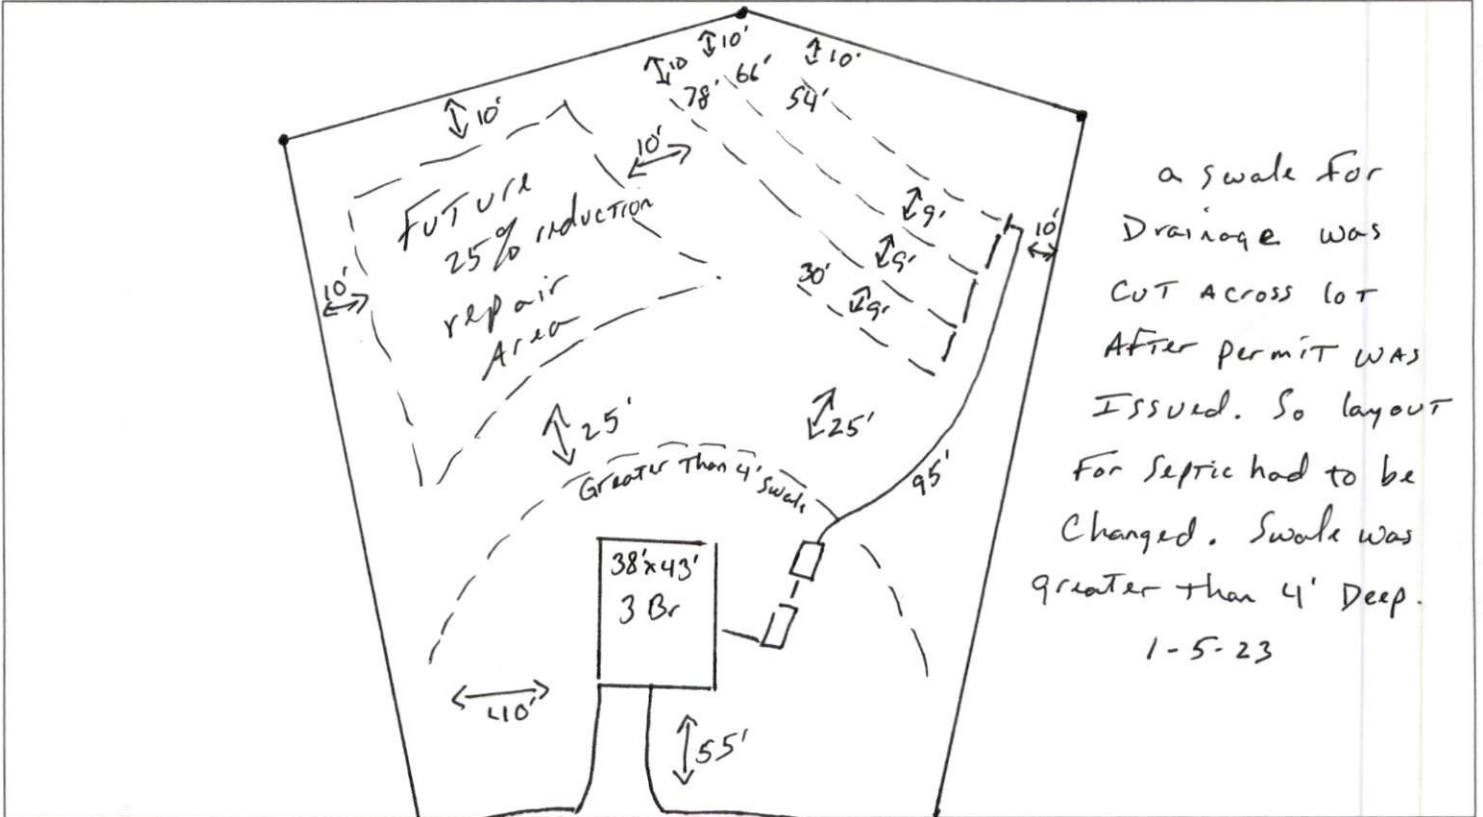 10'
10
10'
66'
78'
54'
10'
10'
FUTURE
25% reduction
repair
Area
10'
9'
9'
9'
30'
10'
25'
25'
Greater Than 4' Swale
95'
38'x43'
3 Br
10'
55'
a swale For
Drainage was
CUT Across loT
AFTer permiT WAS
Issued. So layouT
For Septic had to be
Changed. Swale was
greater than 4' Deep.
1-5-23